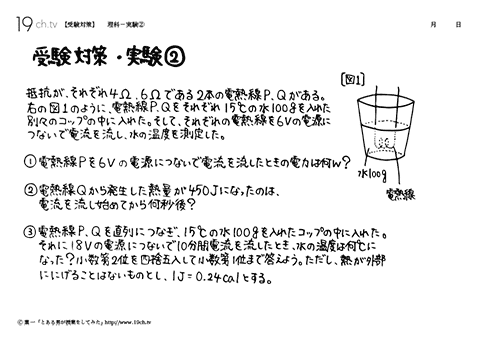 19ch.tv 【受験対策】 理科－実験② 月 日
受験対策・実験②
抵抗が、それぞれ4Ω、6Ωである2本の電熱線P、Qがある。
右の図1のように、電熱線P、Qをそれぞれ15℃の水100gを入れた
別々のコップの中に入れた。そして、それぞれの電熱線を6Vの電源に
つないで電流を流し、水の温度を測定した。
[図1]
水100g
電熱線
①電熱線Pを6Vの電源につないで電流を流したときの電力は何W？
②電熱線Qから発生した熱量が450Jになったのは、
電流を流し始めてから何秒後？
③電熱線P、Qを直列につなぎ、15℃の水100gを入れたコップの中に入れた。
それに18Vの電源につないで10分間電流を流したとき、水の温度は何℃に
なった？小数第2位を四捨五入して小数第1位まで答えよう。ただし、熱が外部
ににげることはないものとし、1J=0.24calとする。
Ⓒ葉一「とある男が授業をしてみた」http://www.19ch.tv